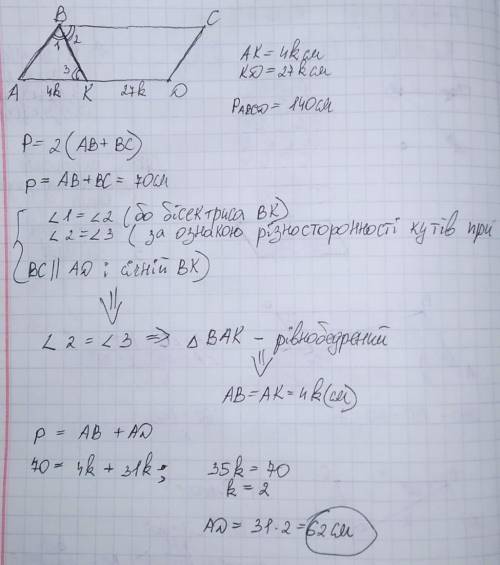 B C
1 2
3
A 4k K 27k D
AK = 4k см
KD = 27k см
P ABCD = 140см
P = 2(AB + BC)
p = AB + BC = 70см
∠1 = ∠2 (бо бісектриса BK)
∠2 = ∠3 (за ознакою різносторонності кутів при
BC || AD і січній BK)
⇓
∠2 = ∠3 ⇒ △ BAK – рівнобедрений
⇓
AB = AK = 4k (см)
p = AB + AD
70 = 4k + 31k; 35k = 70
k = 2
AD = 31·2 = 62см